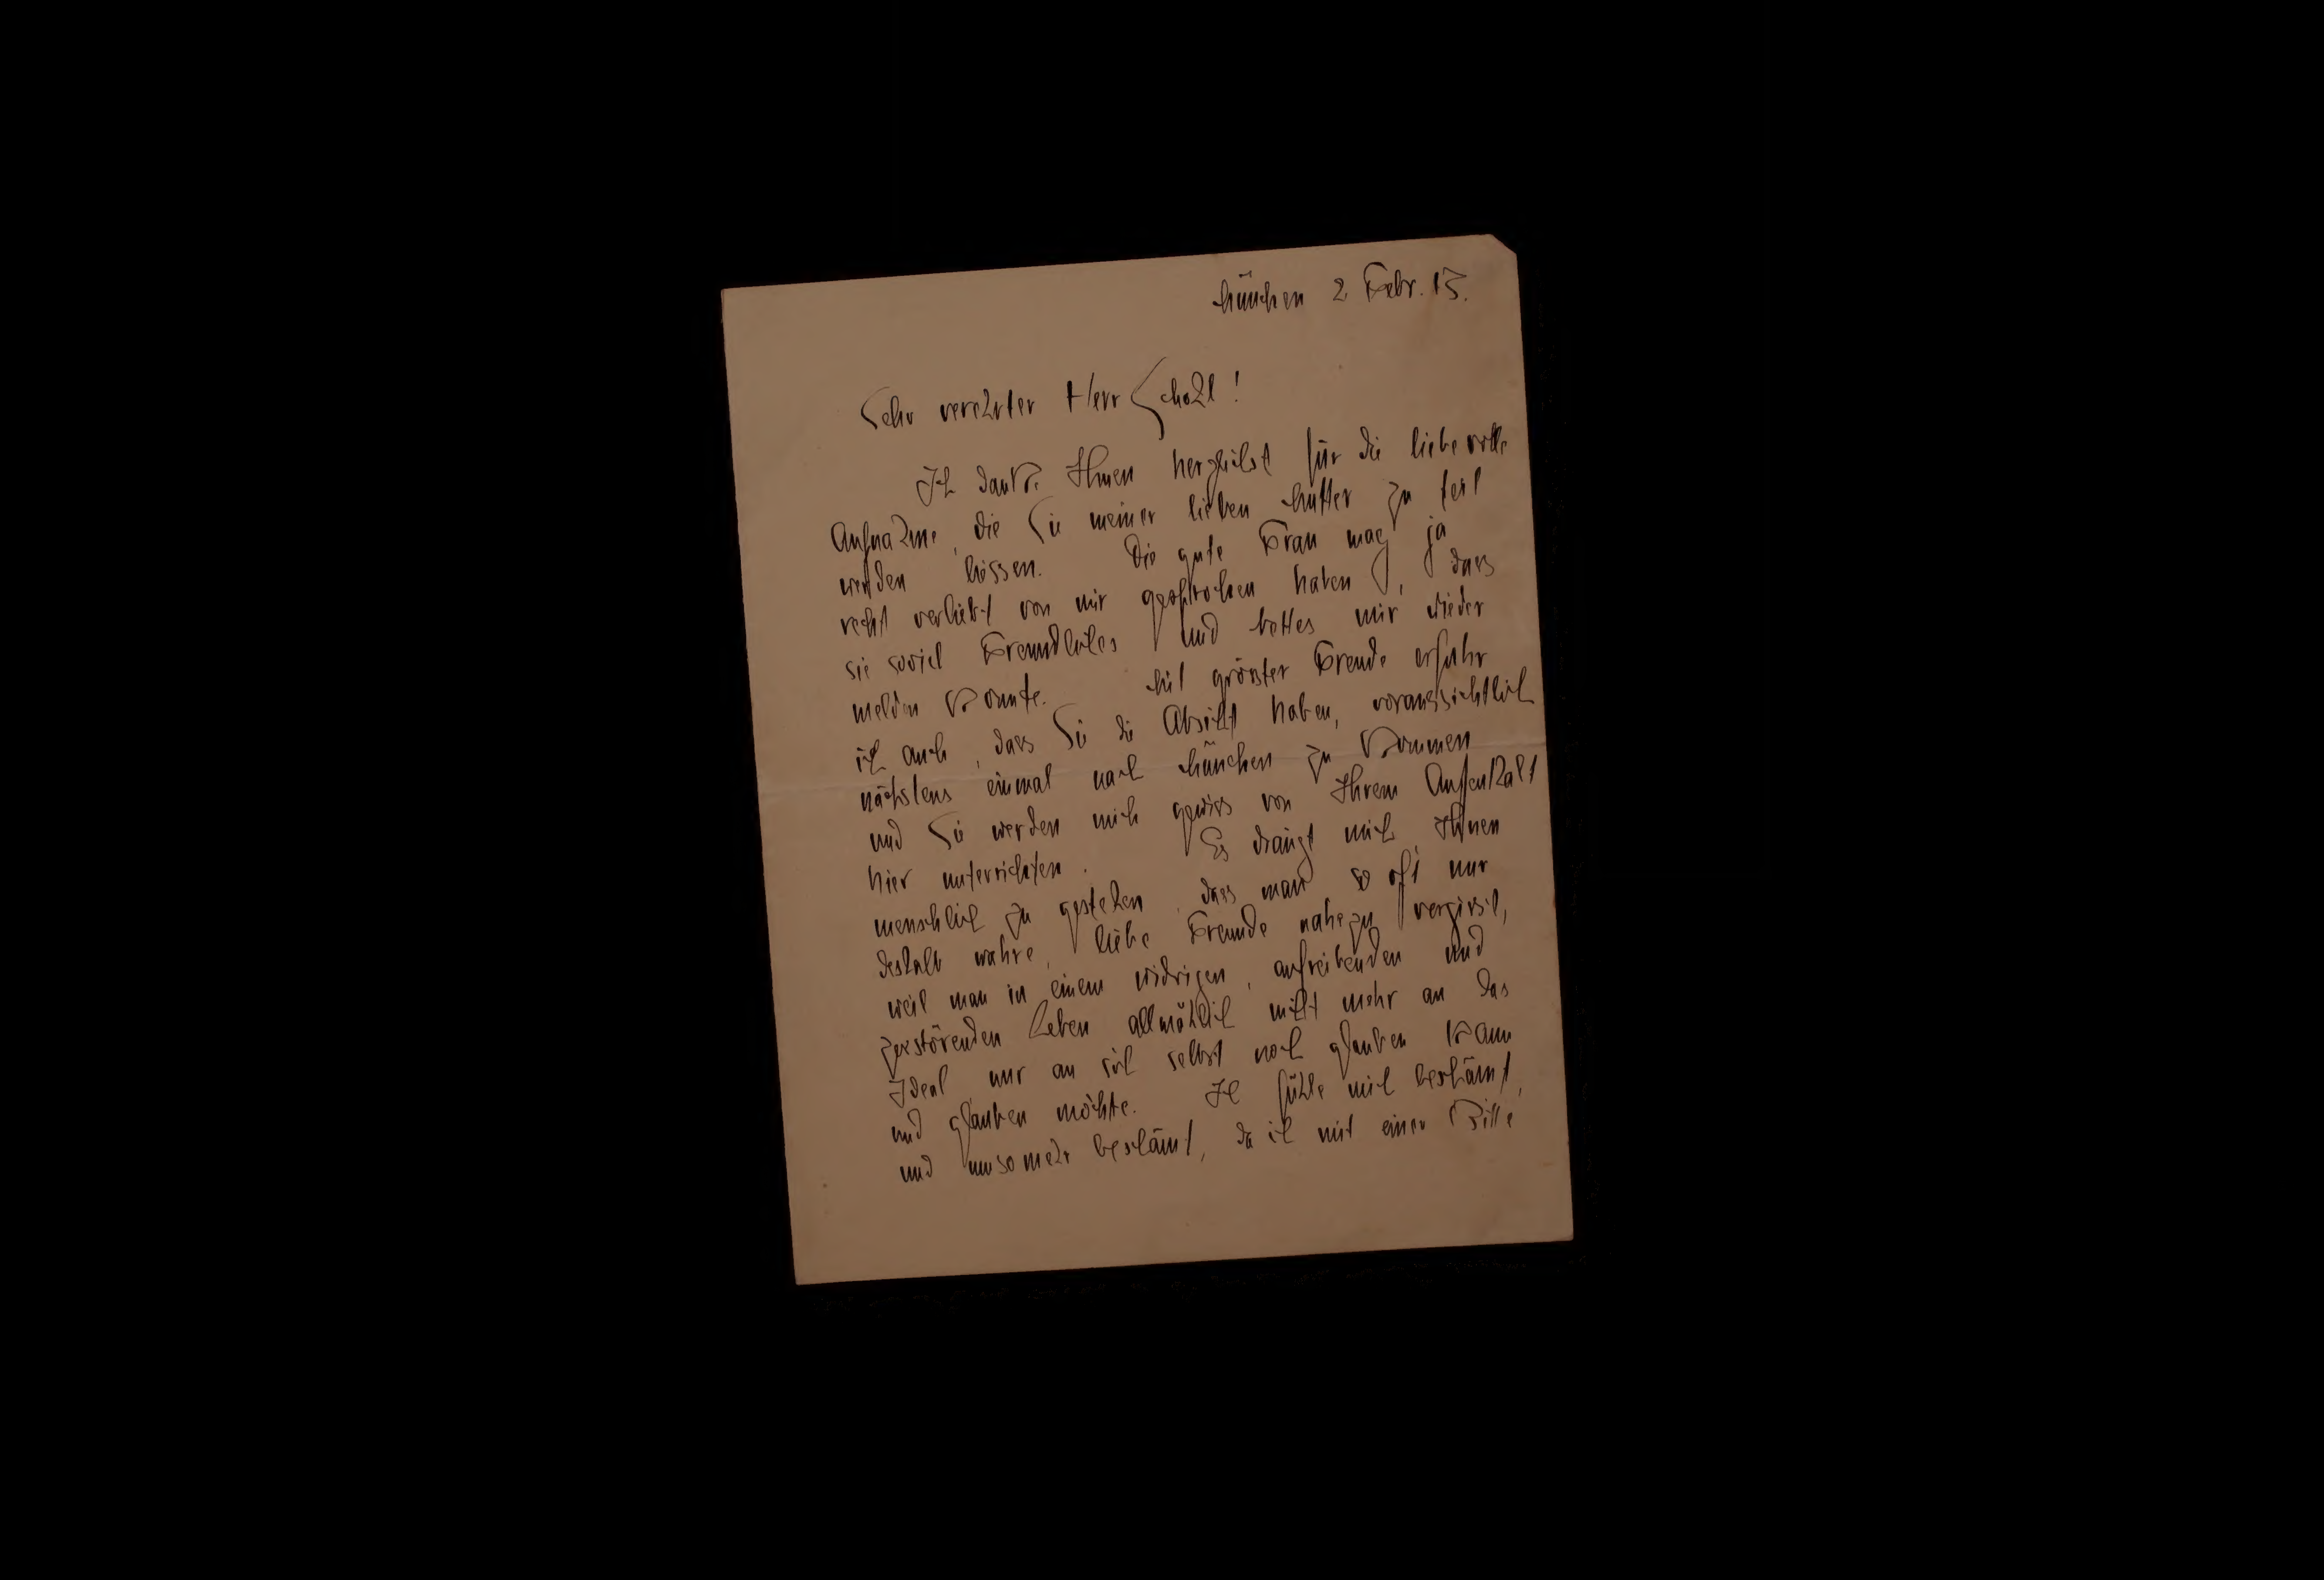 München 2 Febr. 13.
Sehr verehrter Herr Scholl!
Ich danke Ihnen herzlichst für die liebevolle
Aufnahme, die Sie meiner lieben Mutter zu teil
werden liessen. Die gute Frau mag ja
recht verliebt von mir gesprochen haben, dass
sie soviel Freundliches und Nettes mir wieder
melden konnte. Mit grösster Freude erfuhr
ich auch, dass Sie die Absicht haben, voraussichtlich
nächstens einmal nach München zu kommen
und Sie werden mich gewiss von Ihrem Aufenthalt
hier unterrichten. Es drängt mich Ihnen
menschlich zu gestehen, dass man so oft nur
deshalb wahre, liebe Freunde nahezu vergisst,
weil man in einem widrigen, aufreibenden und
zerstörenden Leben allmählich nicht mehr an das
Ideal nur an sich selbst noch glauben kann
und glauben möchte. Ich fühle mich beschämt,
und umsomehr beschämt, da ich mit einer Bitte